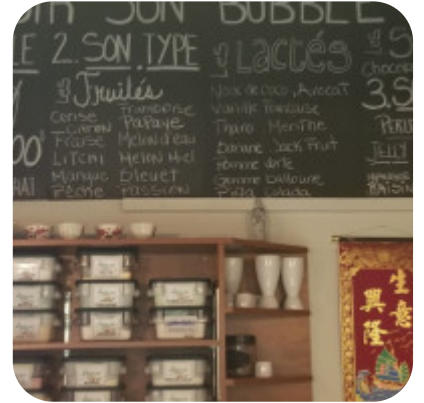 SON BUBBLE
2. SON TYPE
Les Fruités
Cerise
Citron
Fraise
LITCHI
Mangue
Pêche
Framboise
Papaye
Melon d'eau
Melon Miel
bleuet
PASSION
Les Lactés
Noix de coco, Avocat
Vanille Française
Tharo Menthe
Banane Jack Fruit
Pomme verte
Gomme balloune
Piña Colada
3.S
JELLY
RAISIN
生意
興隆